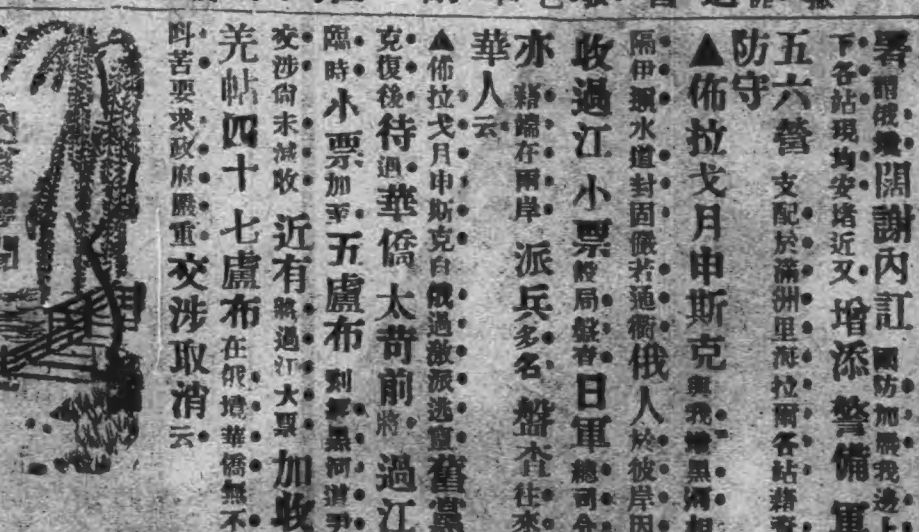 署謂俄境闊謝內訂國防加嚴我邊上
下各站現均安堵近又增添警備軍
五六營支配於滿洲里海拉爾各站藉
防守
▲佈拉戈月申斯克與我增黑河相
隔伊頭水道封固儼若通衢俄人於彼岸因
收過江小票設局盤查日軍總司令
亦藉端在兩岸派兵多名盤查往來
華人云
▲佈拉戈月申斯克自俄過激派逃竄舊黨
克復後待過華僑太苛前將過江
臨時小票加至五盧布到黑河道尹
交涉尙未減收近有將過江大票加收
羌帖四十七盧布在俄境華僑無不
呌苦要求政府嚴重交涉取消云